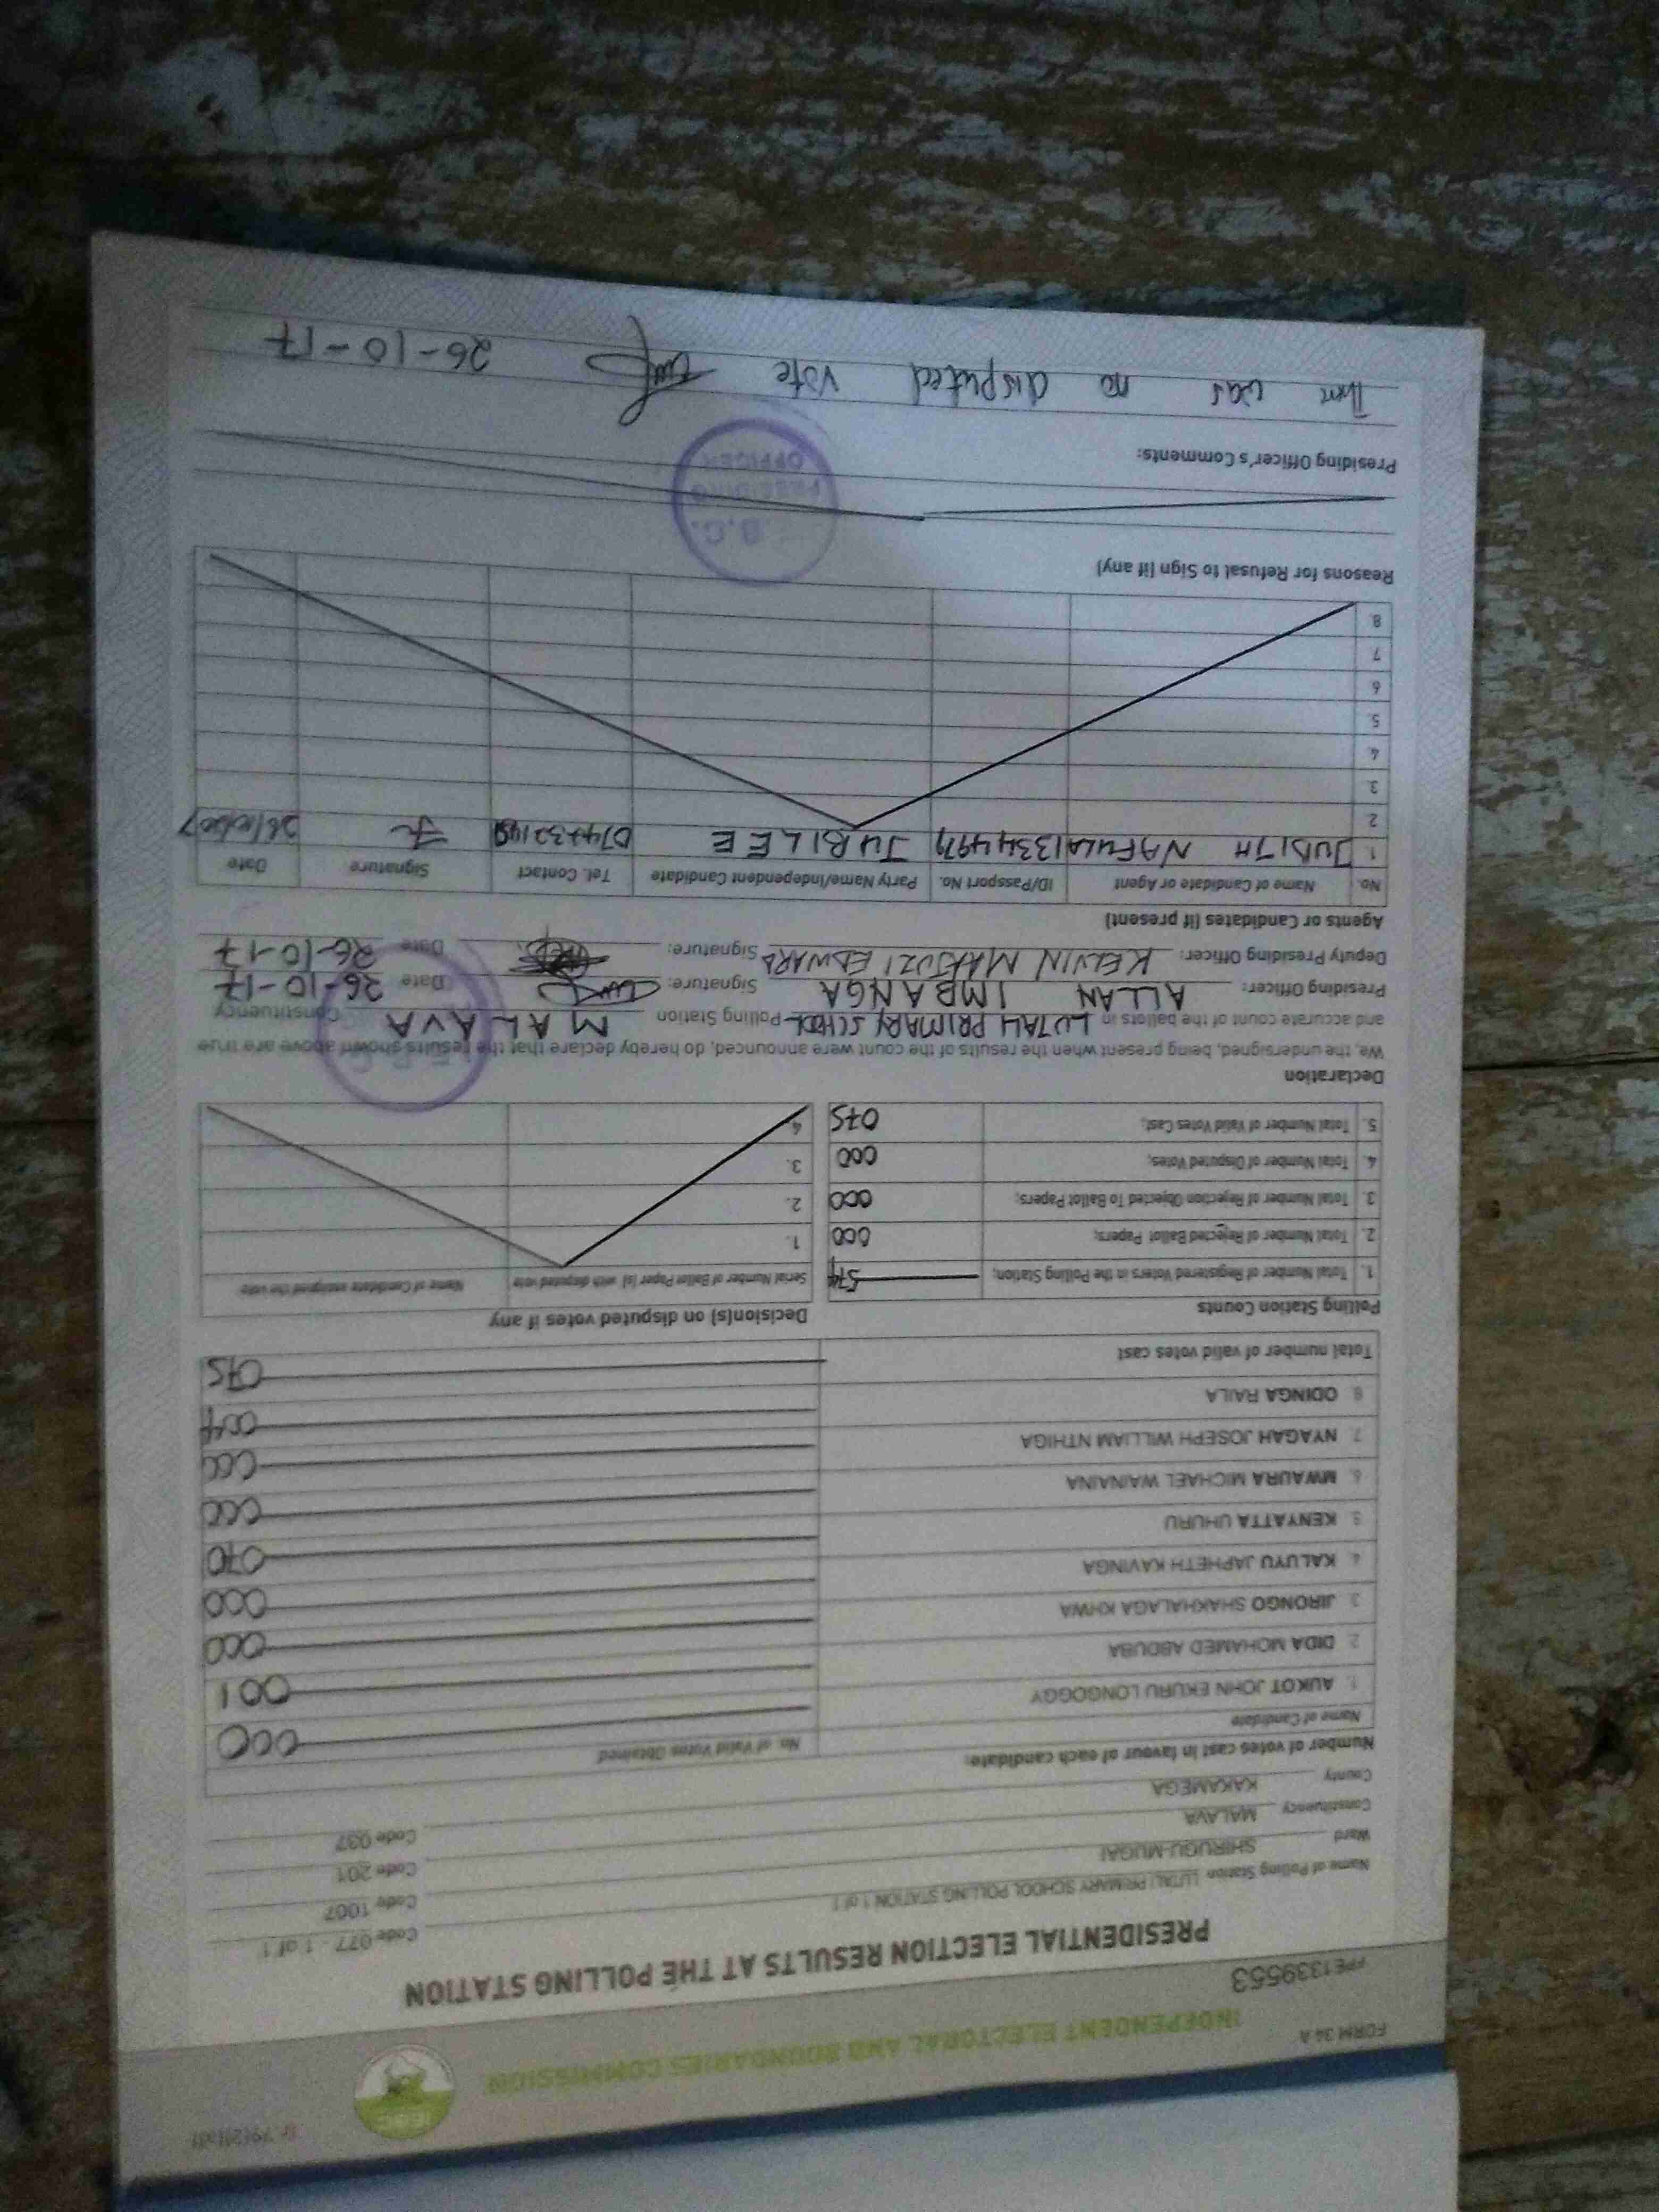 r 79(2)(a)
IEBC
FORM 34 A
INDEPENDENT ELECTORAL AND BOUNDARIES COMMISSION
PPE1339553
PRESIDENTIAL ELECTION RESULTS AT THE POLLING STATION
Name of Polling Station LUTALI PRIMARY SCHOOL POLLING STATION 1 of 1 Code 077 - 1 of 1
Ward SHIRUGU-MUGAI Code 1007
Constituency MALAVA Code 201
County KAKAMEGA Code 037
Number of votes cast in favour of each candidate:
Name of Candidate No. of Valid Votes Obtained
000
1. AUKOT JOHN EKURU LONGOGGY 001
2. DIDA MOHAMED ABDUBA 000
3. JIRONGO SHAKHALAGA KHWA 000
4. KALUYU JAPHETH KAVINGA 070
5. KENYATTA UHURU 000
6. MWAURA MICHAEL WAINAINA 000
7. NYAGAH JOSEPH WILLIAM NTHIGA 004
8. ODINGA RAILA
Total number of valid votes cast 075
Polling Station Counts
1. Total Number of Registered Voters in the Polling Station; 574
2. Total Number of Rejected Ballot Papers; 000
3. Total Number of Rejection Objected To Ballot Papers; 000
4. Total Number of Disputed Votes; 000
5. Total Number of Valid Votes Cast; 075
Decision(s) on disputed votes if any
Serial Number of Ballot Paper (s) with disputed vote Name of Candidate assigned the vote
1.
2.
3.
4.
Declaration
We, the undersigned, being present when the results of the count were announced, do hereby declare that the results shown above are true
and accurate count of the ballots in LUTALI PRIMARY SCHOOL Polling Station MALAVA Constituency
Presiding Officer: ALLAN IMBANGA Signature: Date 26-10-17
Deputy Presiding Officer: KELVIN MAKUZI EDWARD Signature: Date 26-10-17
Agents or Candidates (if present)
No. Name of Candidate or Agent ID/Passport No. Party Name/Independent Candidate Tel. Contact Signature Date
1. JUDITH NAFULA 13344979 JUBILEE
2
3.
4.
5.
6
7
8.
Reasons for Refusal to Sign (if any)
PRESIDING
OFFICER
Presiding Officer's Comments:
There was no disputed vote 26-10-17